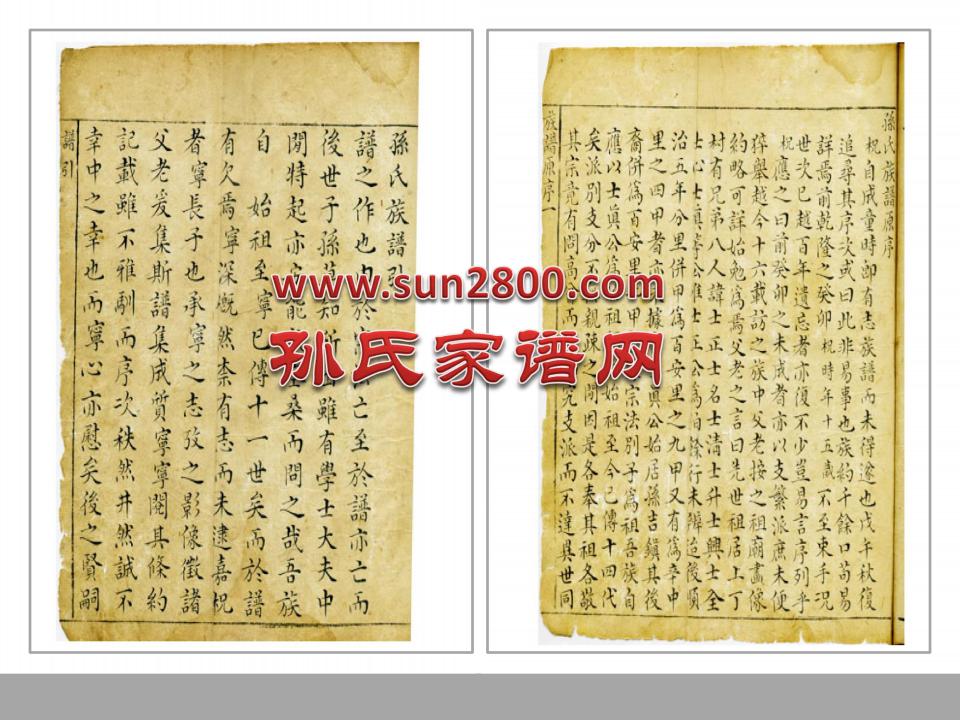 孫氏族譜原序
柷自成童時即有志族譜而未得遂也戊午秋復
追尋其序次或曰此非易事也族約千餘口苟易
詳焉前乾隆之癸卯柷時年十五歲不至束手況
世次已越百年遺忘者亦復不少豈易言序列乎
柷應之曰前癸卯之未成者亦以支繁派庶未便
猝舉越今十六載訪之族中父老按之祖廟畫像
約略可詳始勉為焉父老之言曰先世祖居上丁
村有兄弟八人諱士正士名士清士升士興士全
士心士真
治五年分里併甲為百安里之九甲又有為辛中
里之四甲者亦
裔併為百安里
應以士真公為
矣派別支分不
其宗竟有問高
據
真公始居孫吉鎮其後
宗法別子為祖吾族自
始祖至今已傳十四代
親疎之間因是各奉其祖各敬
而
究支派而不達異世同
族譜原序一
孫氏族譜引
譜之作也
亡至於譜亦亡而
後世子孫莫知所
雖有學士大夫中
間特起亦
桑而問之哉吾族
自始祖至寧已傳十一世矣而於譜
有欠焉寧深慨然柰有志而未逮嘉柷
者寧長子也承寧之志攷之影像徵諸
父老爰集斯譜集成質寧寧閱其條約
記載雖不雅馴而序次秩然井然誠不
幸中之幸也而寧心亦慰矣後之賢嗣
譜引
www.sun2800.com
孙氏家谱网